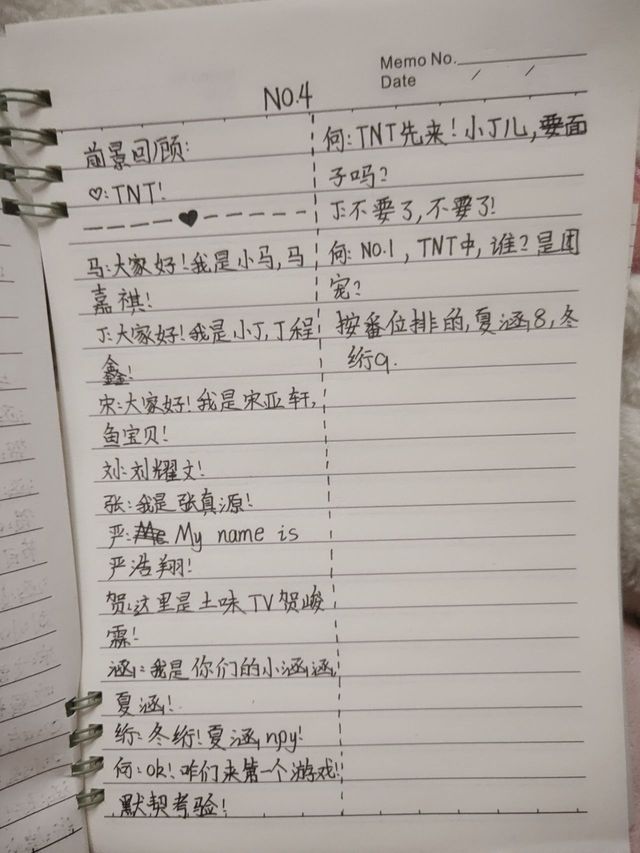 Memo No.
Date / /
NO.4
前景回顾:
♡:TNT!
马:大家好!我是小马,马
嘉祺!
J:大家好!我是小J,丁程
鑫!
宋:大家好!我是宋亚轩,
鱼宝贝!
刘:刘耀文!
张:我是张真源!
严:My name is
严浩翔!
贺:这里是土味TV贺峻
霖!
涵:我是你们的小涵涵,
夏涵!
绗:冬绗!夏涵npy!
何:ok!咱们来第一个游戏!
默契考验!
何:TNT先来!小J儿,要面
子吗?
J:不要了,不要了!
何:NO.1,TNT中,谁?是团
宠?
按番位排的,夏涵8,冬
绗9.